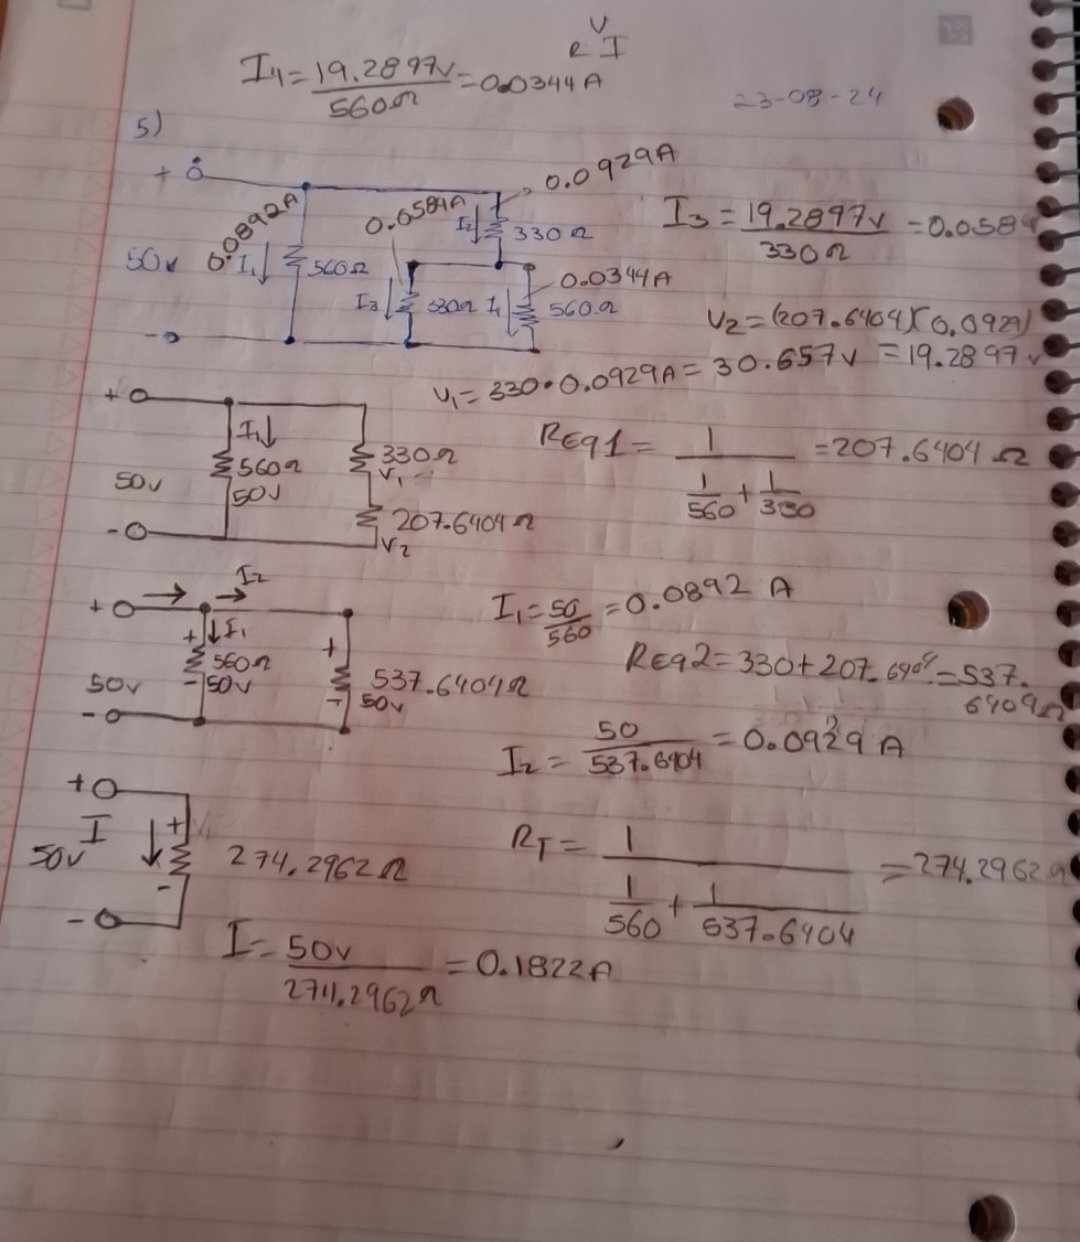 V
R I
I4 = 19.2897v / 560Ω = 0.0344A
23-08-24
5)
+
0.0929A
0.0892A
0.0584A
I2↓ 330Ω
I3 = 19.2897v / 330Ω = 0.0584
50v I1↓ 560Ω
0.0344A
I3↓ 330Ω I4↓ 560Ω
-
V2 = (207.6404)(0.0929) = 19.2897v
V1 = 330•0.0929A = 30.657v
+
I1↓
560Ω
50v
50v
330Ω
V1
207.6404Ω
V2
-
REq1 = 1 / (1/560 + 1/330) = 207.6404Ω
→ I2 →
+
+ ↓I1
560Ω
50v - 50v
+
537.6404Ω
- 50v
-
I1 = 50/560 = 0.0892 A
REq2 = 330+207.6404 = 537.6404Ω
I2 = 50 / 537.6404 = 0.0929 A
+
I ↓ +
50v 274.2962Ω
-
-
RT = 1 / (1/560 + 1/537.6404) = 274.2962Ω
I = 50v / 274.2962Ω = 0.1822A